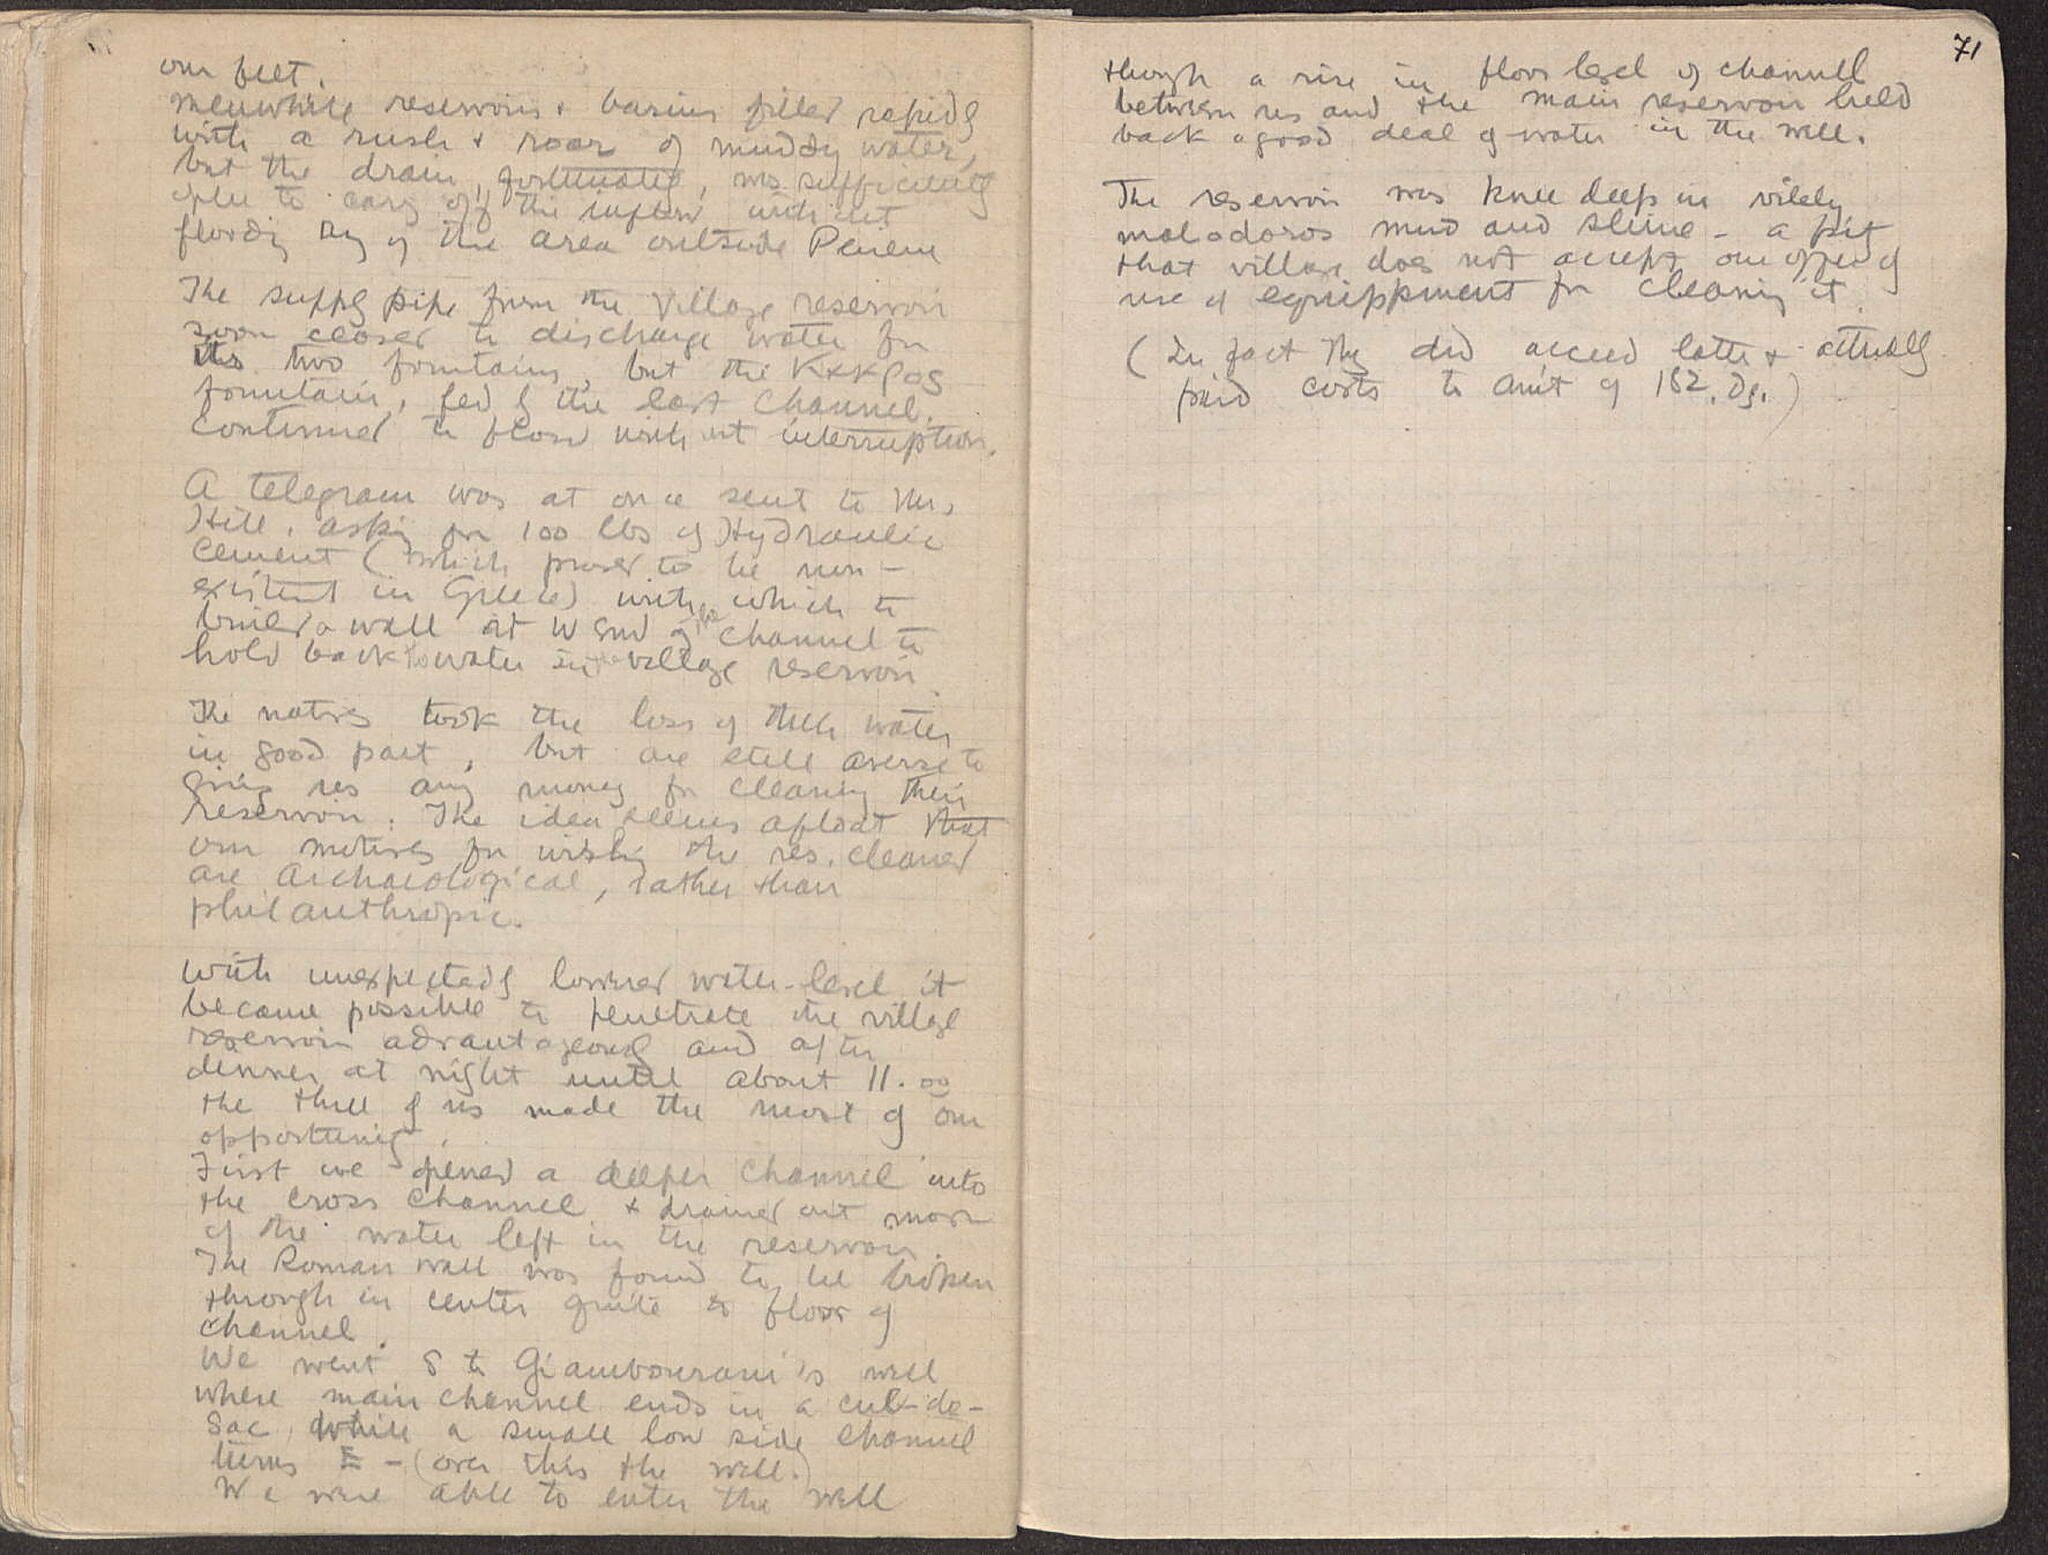 our feet.
Meanwhile reservoirs & basins filled rapidly
with a rush & roar of muddy water,
but the drain, fortunately, was sufficiently
open to carry off the inflow without
flooding any of the area outside Peirene
The supply pipe from the Village reservoir
soon ceased to discharge water for
the two fountains, but the
fountain, fed by the east channel,
continued to flow without interruption.
A telegram was at once sent to Mr.
Hill, asking for 100 lbs of Hydraulic
Cement (which proved to be non-
existent in Greece) with which to
build a wall at W end of the channel to
hold back the water in the village reservoir.
The natives took the loss of their water
in good part, but are still averse to
giving us any money for cleaning their
reservoir. The idea seems afloat that
our motives for wishing the res. cleaned
are archaeological, rather than
philanthropic.
With unexpectedly lowered water-level it
became possible to penetrate the village
reservoir advantageously and after
dinner at night until about 11.00
the three of us made the most of our
opportunity.
First we opened a deeper channel into
the cross channel & drained out more
of the water left in the reservoir.
The Roman wall was found to be broken
through in center quite to floor of
channel.
We went S to Giambourani's well
where main channel ends in a cul-de-
sac, while a small low side channel
turns E - (over this the well.)
We were able to enter the well
71
though a rise in floor level of channel
between us and the main reservoir held
back a good deal of water in the well.
The reservoir was knee deep in vilely
malodoros mud and slime - a pity
that village does not accept our offer of
use of equippment for cleaning it.
(In fact they did acceed later & actually
paid costs to am't of 182. Dr.)